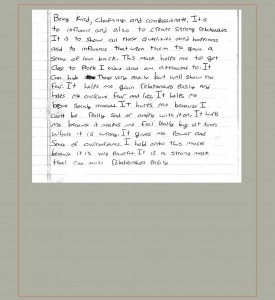 Being Kind, Charming and compassionate, It is
to influence and also to create strong Relationships
It is to show all these qualities and happiness
and to influence that when them to gain a
Sense of love back. This mask helps me to get
Close to People I value and am attracted to It
Can hide these very easily but will show no
fear. It helps me gain Relationships easily and
helps me overcome fear and lies. It helps me
socially involved. It hurts me because I
can't be Really sad or angry with it on. It hurts
me because it makes me feel Really bad at times
When it is wrong. It gives me Power and
Sense of I hold onto this mask
because it is very Powerful. It is a strong mask
that can make Relationships easily